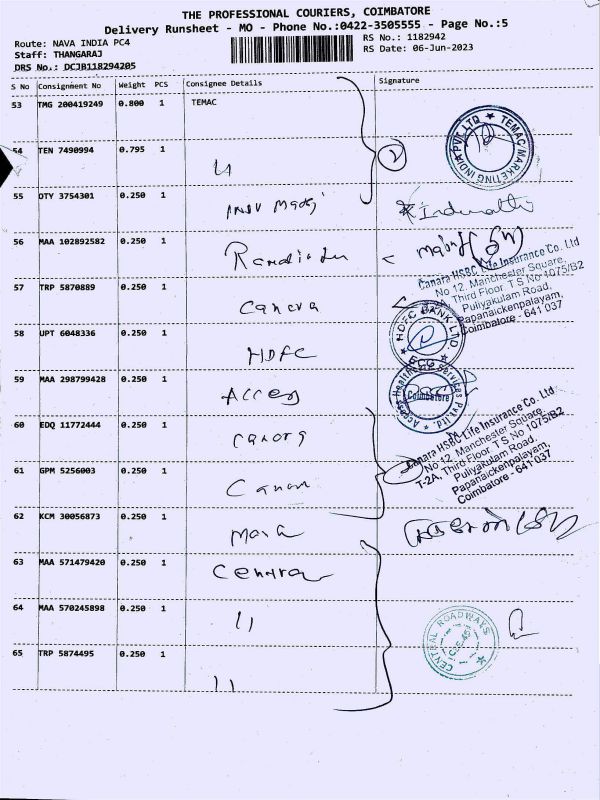 THE PROFESSIONAL COURIERS, COIMBATORE
Delivery Runsheet - MO - Phone No.:0422-3505555 - Page No.:5
Route: NAVA INDIA PC4
Staff: THANGARAJ
DRS No.: DCJB118294205
RS No.: 1182942
RS Date: 06-Jun-2023
S No Consignment No Weight PCS Consignee Details Signature
53 TMG 200419249 0.800 1 TEMAC
TEMAC MARKETING INDIA PVT LTD
54 TEN 7490994 0.795 1 2
55 OTY 3754301 0.250 1
56 MAA 102892582 0.250 1
Canara HSBC Life Insurance Co. Ltd
No 12, Manchester Square,
T-2A, Third Floor, T S No 1075/B2
Puliyakulam Road,
Papanaickenpalayam,
Coimbatore - 641 037
57 TRP 5870889 0.250 1 Canara
HDFC BANK LTD.
58 UPT 6048336 0.250 1 HDFC
59 MAA 298799428 0.250 1 Access
Access Healthcare Services Pvt. Ltd
Coimbatore
60 EDQ 11772444 0.250 1
Canara HSBC Life Insurance Co. Ltd
No 12, Manchester Square,
T-2A, Third Floor, T S No 1075/B2
Puliyakulam Road,
Papanaickenpalayam,
Coimbatore - 641 037
61 GPM 5256003 0.250 1
62 KCM 30056873 0.250 1
63 MAA 571479420 0.250 1
64 MAA 570245898 0.250 1 11
CENTRAL ROADWAYS
CBE-45
65 TRP 5874495 0.250 1 11